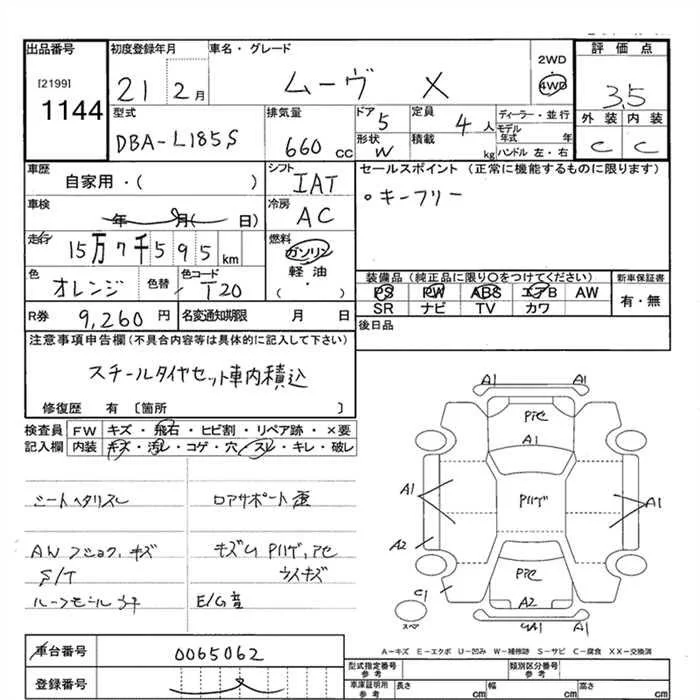 出品番号 初度登録年月 車名・グレード 評価点
[2199] 1144
21 2月 ムーヴ X 2WD 4WD 3.5
型式 DBA-L185S 排気量 660cc ドア 5 定員 4人 ディーラー・並行
形状 W 積載 kg モデル年式 年 ハンドル 左・右
外装 内装
C C
車歴 自家用・( ) シフト IAT セールスポイント(正常に機能するものに限ります)
。キーフリー
車検 年 月( 日) 冷房 AC
走行 15万7千595km 燃料 ガソリン 軽油 ( )
色 オレンジ 色替 色コード T20
装備品(純正品に限り○をつけてください) 新車保証書
PS PW ABS エアB AW 有・無
SR ナビ TV カワ
R券 9,260円 名変通知期限 月 日 後日品
注意事項申告欄(不具合内容等は具体的に記入して下さい)
スチールタイヤセット車内積込
修復歴 有 〔箇所 〕
検査員 FW キズ・飛石・ヒビ割・リペア跡・×要
記入欄 内装 キズ・汚レ・コゲ・穴・スレ・キレ・破レ
シートヘタリスレ ロアサポート
AW キズ キズ
S/T
E/G音
A1 A1
A1
A1 A1
A2
C1
A2
A1
スペア
A-キズ E-エクボ U-凹み W-補修跡 S-サビ C-腐食 XX-交換済
車台番号 0065062 型式指定番号 参考 類別区分番号 参考
登録番号 車庫証明用 参考 長さ cm 幅 cm 高さ cm